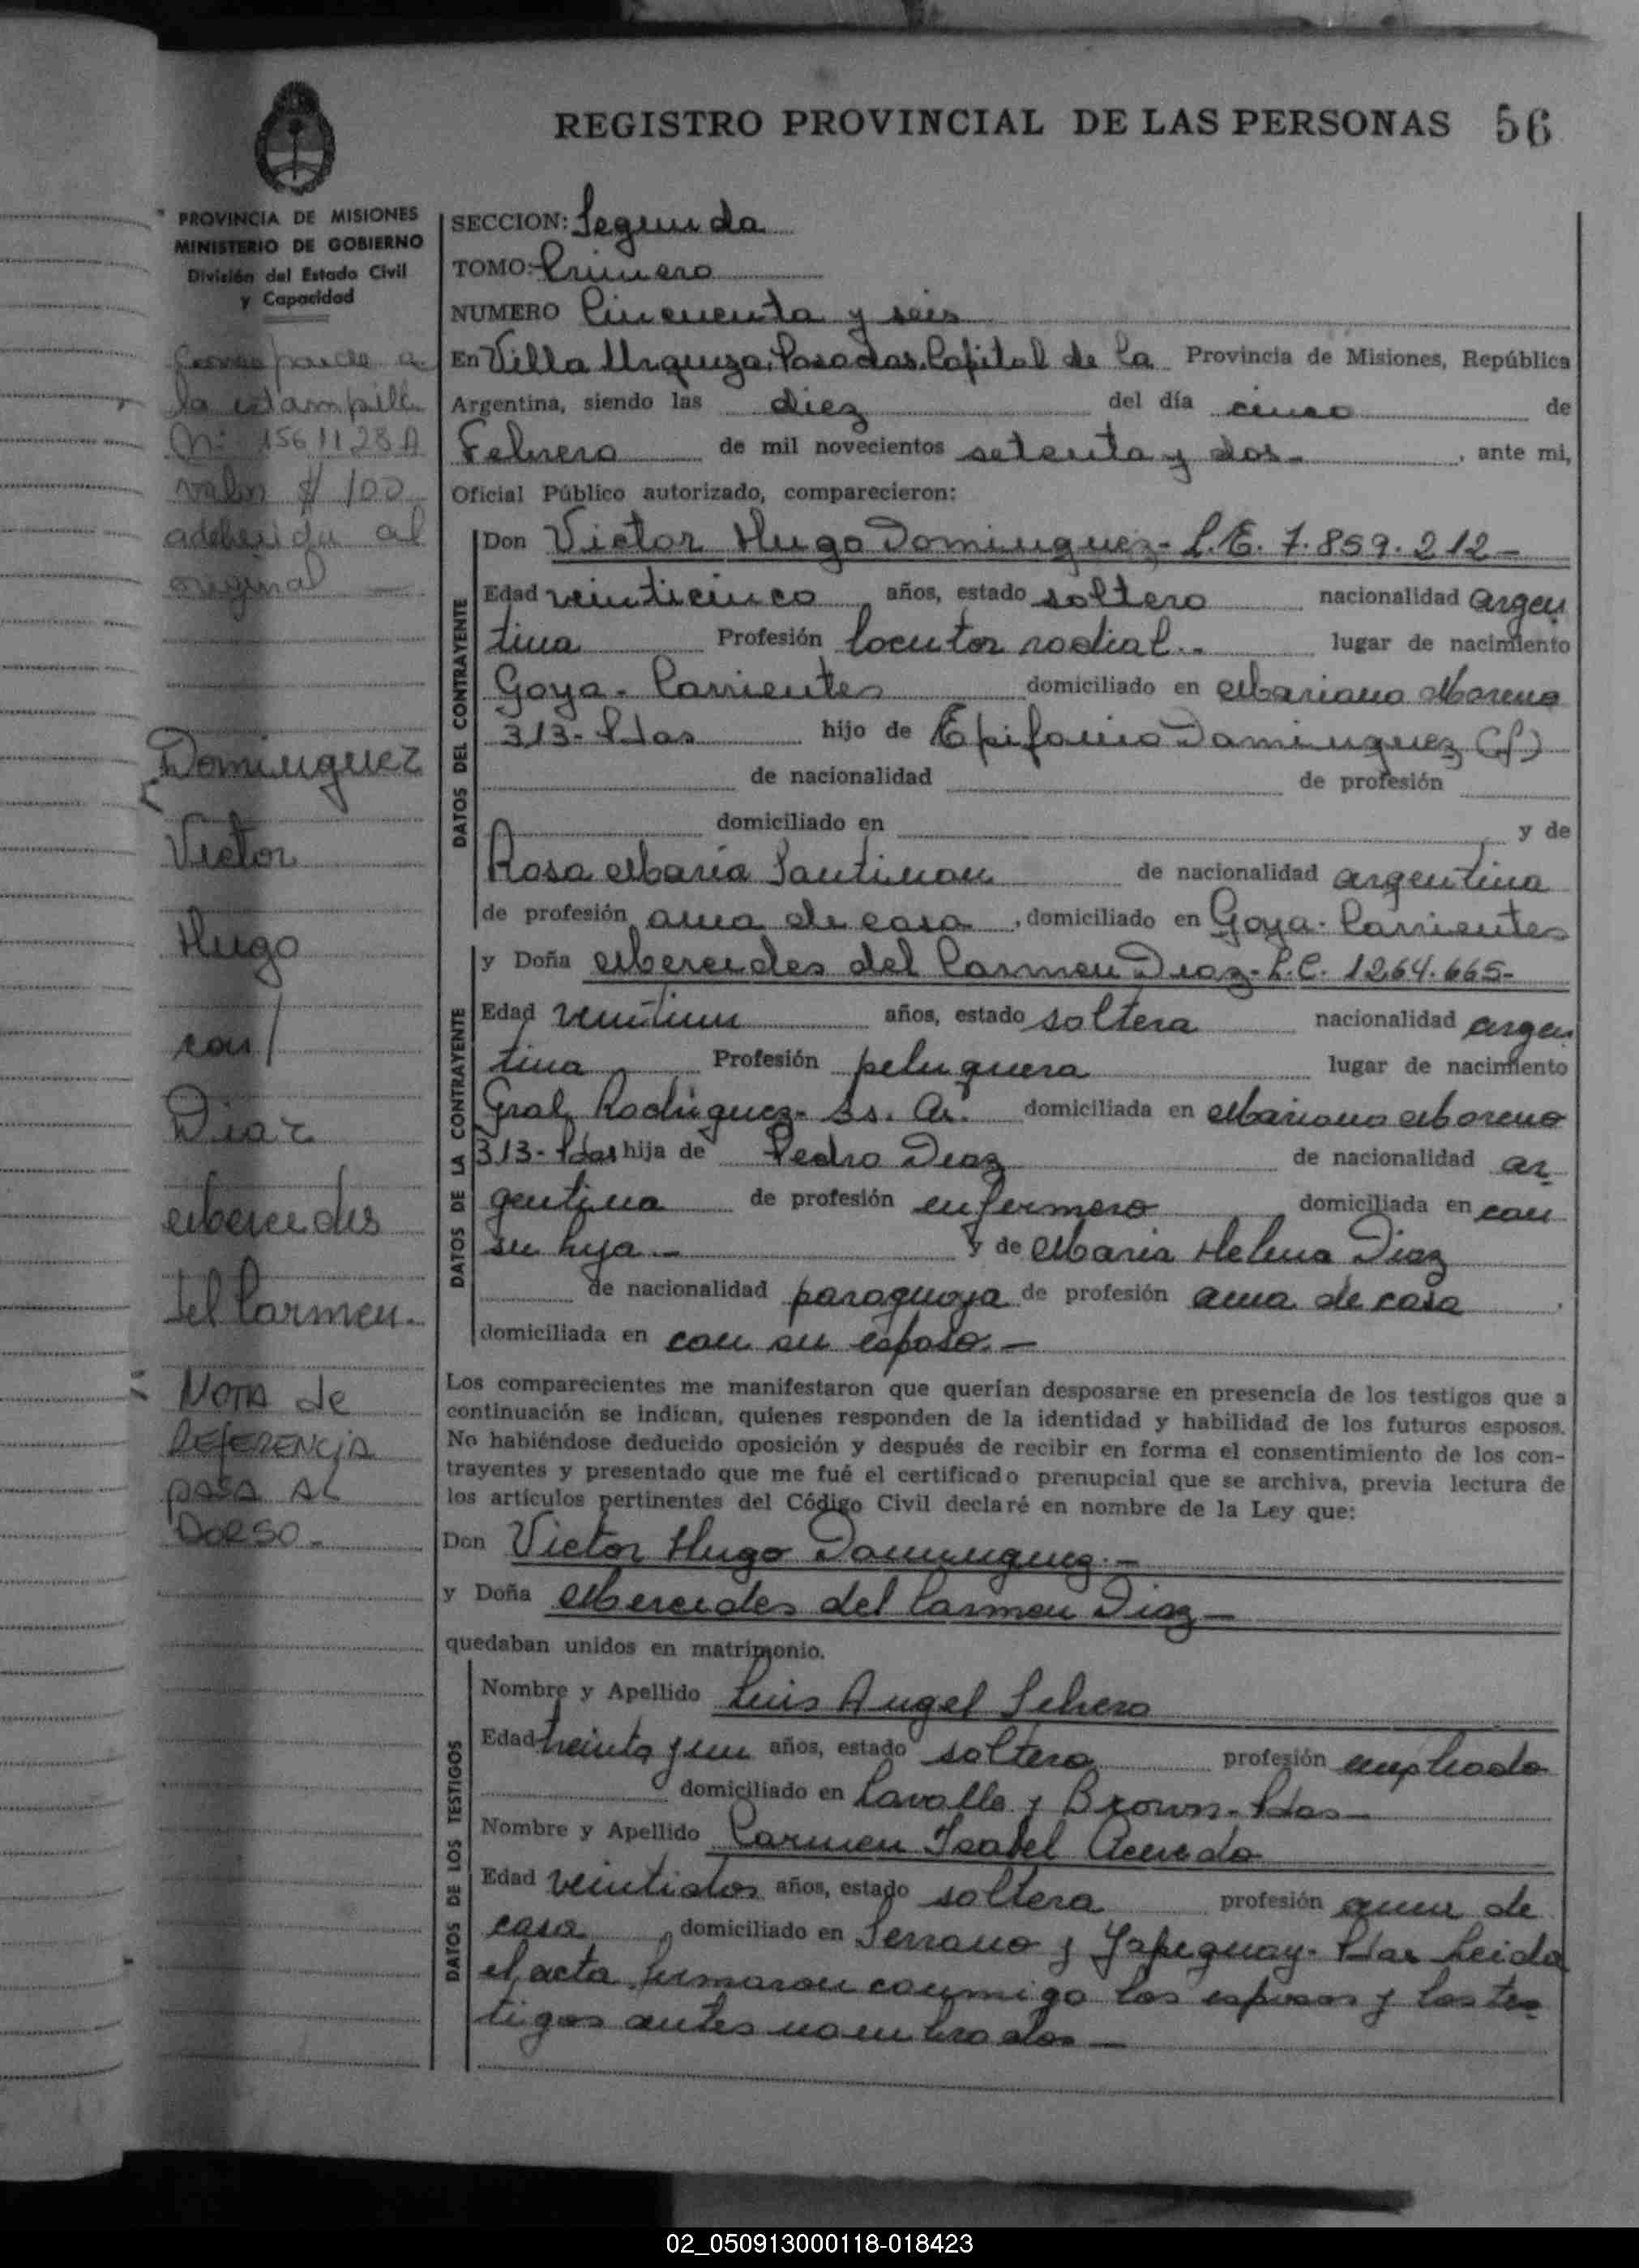 REGISTRO PROVINCIAL DE LAS PERSONAS 56
PROVINCIA DE MISIONES
MINISTERIO DE GOBIERNO
División del Estado Civil
y Capacidad
Corresponde a
la estampilla
Nº 1561128A
valor $ 100
adherida al
original —
Dominguez
Victor
Hugo
con/
Diaz
Mercedes
del Carmen.
NOTA de
REFERENCIA
PASA AL
DORSO.-
SECCION: Segunda
TOMO: Primero
NUMERO Cincuenta y seis
En Villa Urquiza, Posadas, Capital de la Provincia de Misiones, República
Argentina, siendo las diez del día cinco de
Febrero de mil novecientos setenta y dos.- , ante mi,
Oficial Público autorizado, comparecieron:
DATOS DEL CONTRAYENTE
Don Victor Hugo Dominguez- L.E. 7.859.212-
Edad veinticinco años, estado soltero nacionalidad argen
tina Profesión locutor radial.- lugar de nacimiento
Goya- Corrientes domiciliado en Mariano Moreno
313- Pdas hijo de Epifanio Dominguez (f)
de nacionalidad de profesión
domiciliado en y de
Rosa Maria de nacionalidad argentina
de profesión ama de casa , domiciliado en Goya- Corrientes
DATOS DE LA CONTRAYENTE
y Doña Mercedes del Carmen Diaz- L.C. 1264.665-
Edad años, estado soltera nacionalidad argen
tina Profesión peluquera lugar de nacimiento
Gral. Rodriguez- Bs. As. domiciliada en Mariano Moreno
313- Pdas hija de Pedro Diaz de nacionalidad ar
gentina de profesión enfermero domiciliada en con
su hija.- y de Maria Helena Diaz
de nacionalidad paraguaya de profesión ama de casa
domiciliada en con su esposo.-
Los comparecientes me manifestaron que querían desposarse en presencia de los testigos que a
continuación se indican, quienes responden de la identidad y habilidad de los futuros esposos.
No habiéndose deducido oposición y después de recibir en forma el consentimiento de los con-
trayentes y presentado que me fué el certificado prenupcial que se archiva, previa lectura de
los artículos pertinentes del Código Civil declaré en nombre de la Ley que:
Don Victor Hugo Dominguez.-
y Doña Mercedes del Carmen Diaz-
quedaban unidos en matrimonio.
DATOS DE LOS TESTIGOS
Nombre y Apellido Luis Angel
Edad treinta y un años, estado soltero profesión empleado
domiciliado en Lavalle y Brown- Pdas-
Nombre y Apellido Carmen Isabel Acevedo
Edad veintidos años, estado soltera profesión ama de
casa domiciliado en Serrano y Yapeguay- Pdas Leida
el acta firmaron conmigo los esposos y los tes-
tigos antes nombrados-
02_050913000118-018423